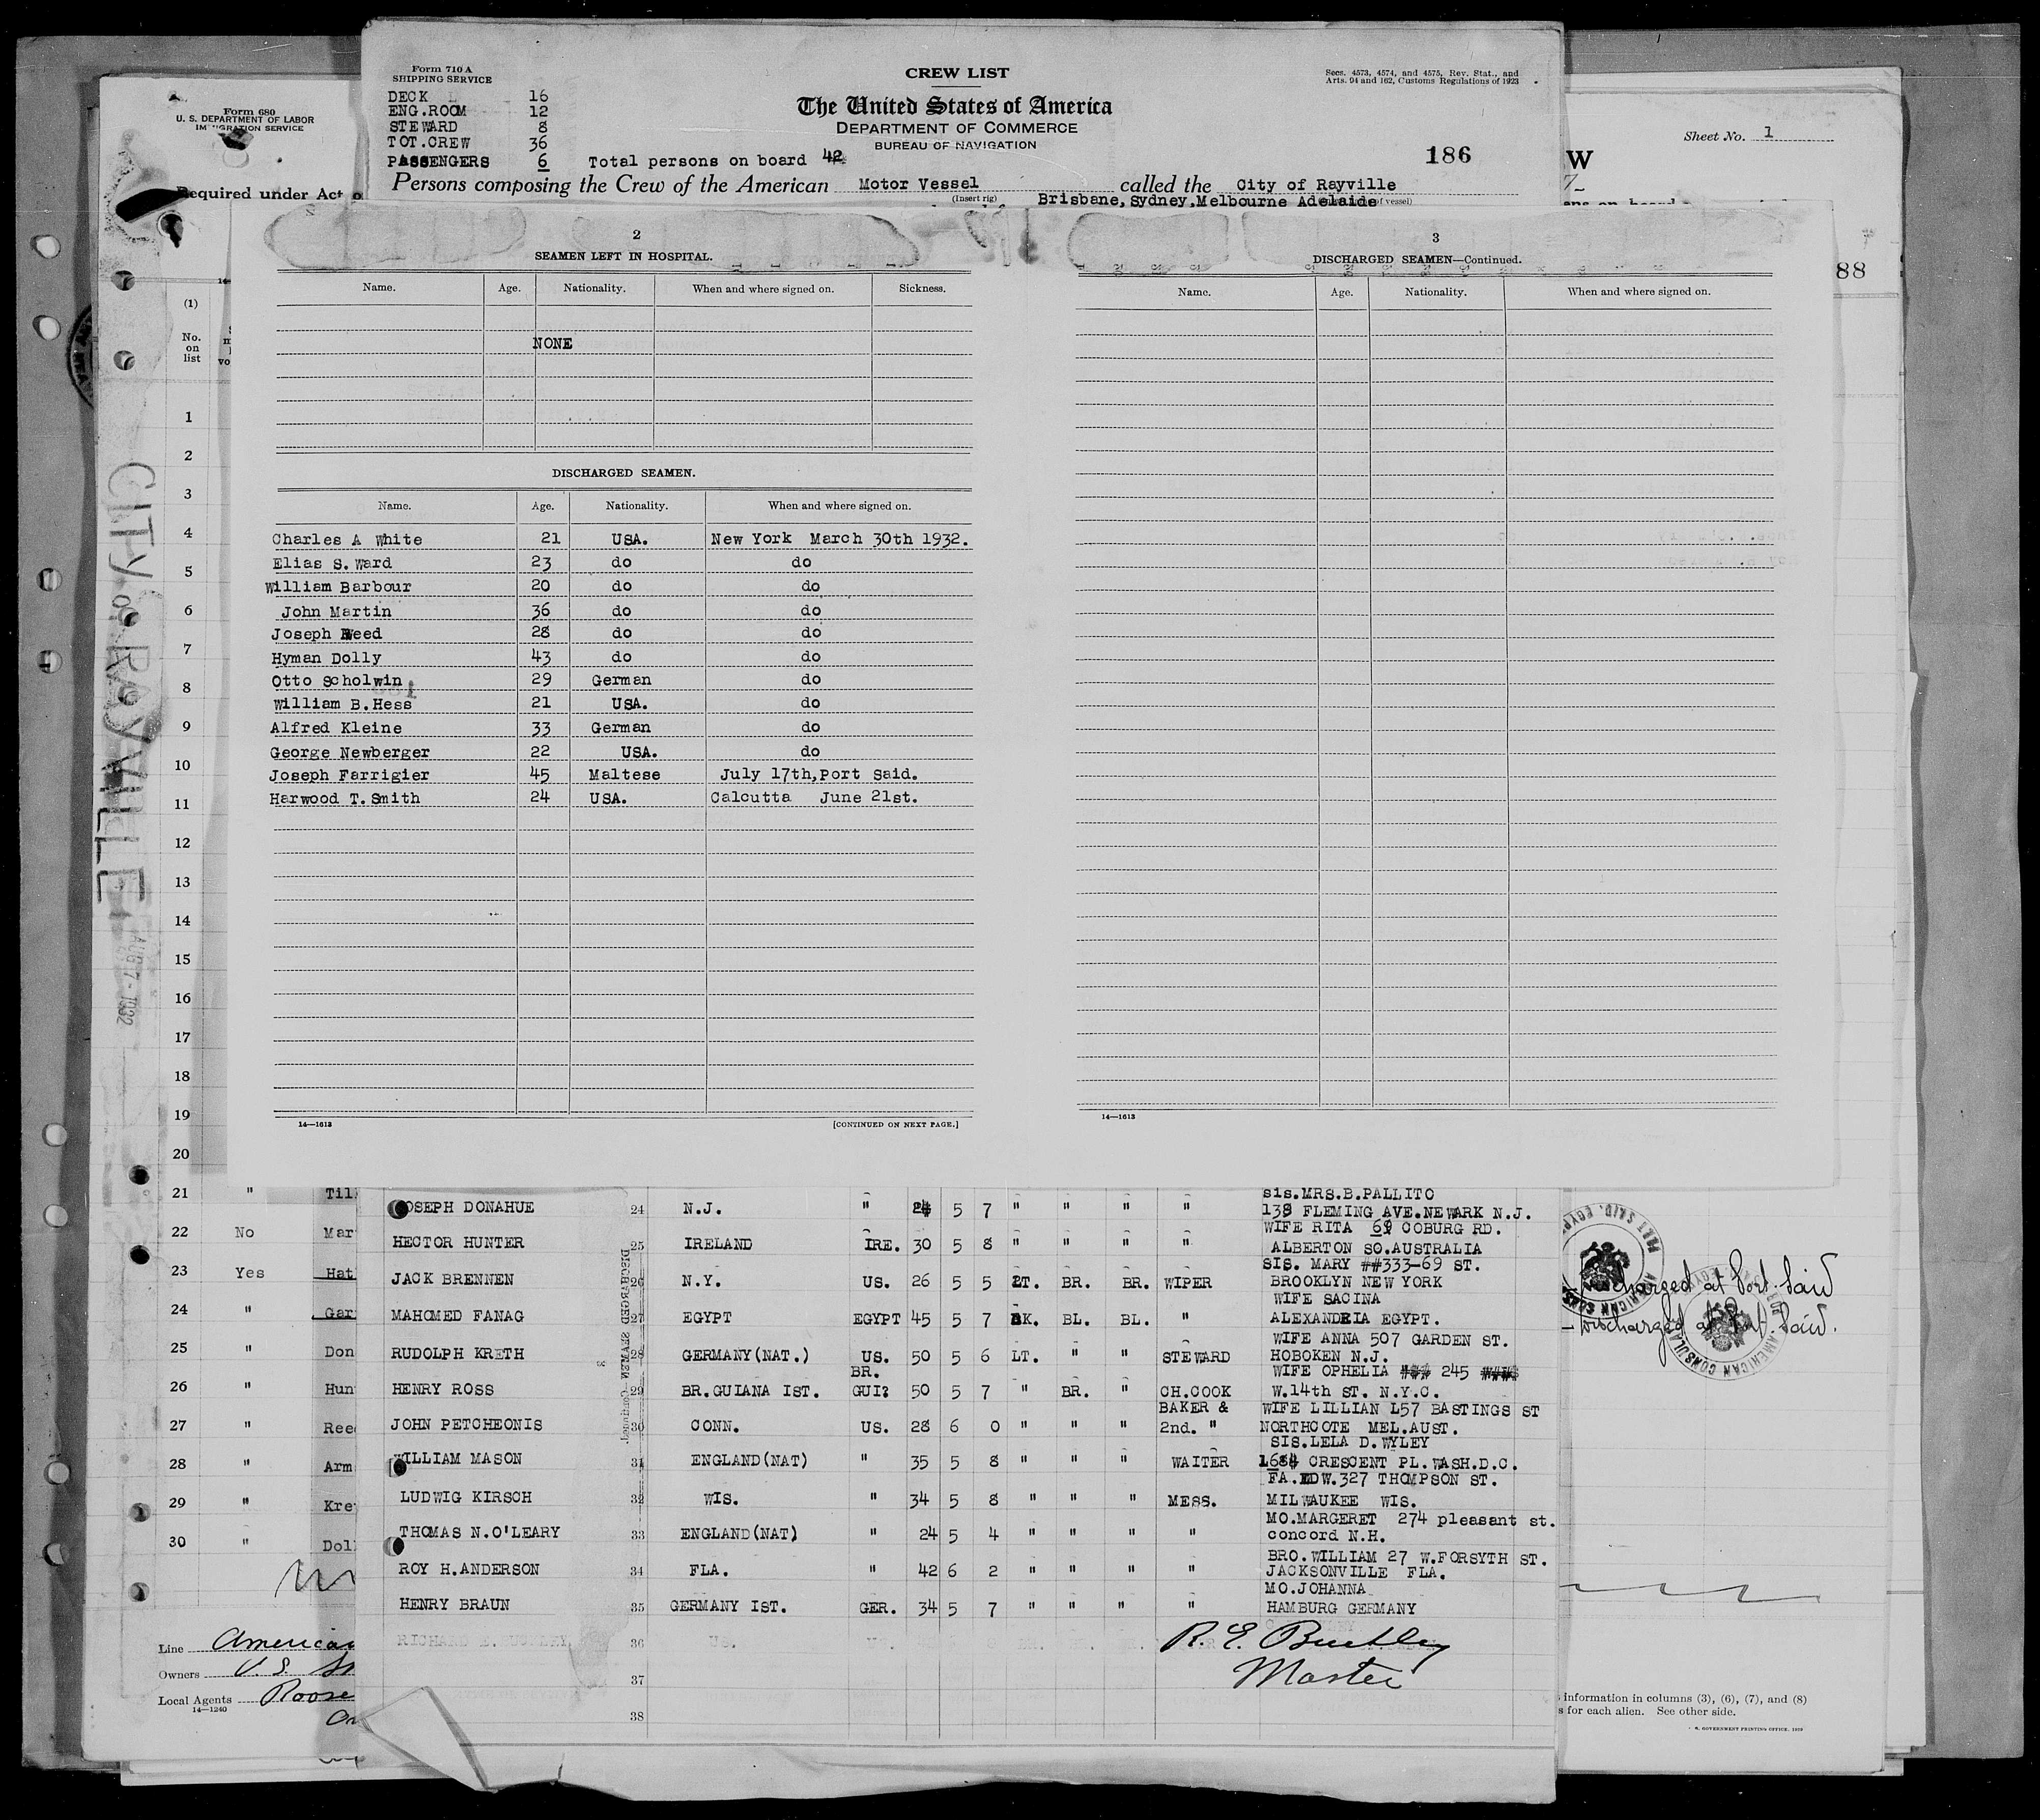 Form 710 A
SHIPPING SERVICE
CREW LIST
Secs. 4573, 4574, and 4575, Rev. Stat., and
Arts. 94 and 162, Customs Regulations of 1923
DECK 16
ENG.ROOM 12
STEWARD 8
TOT.CREW 36
PASSENGERS 6 Total persons on board 42
The United States of America
DEPARTMENT OF COMMERCE
BUREAU OF NAVIGATION
186
Persons composing the Crew of the American Motor Vessel called the City of Rayville
(Insert rig)
Brisbane,Sydney,Melbourne Adelaide
of vessel)
Form 680
U. S. DEPARTMENT OF LABOR
IMMIGRATION SERVICE
Required under Act o
Sheet No. 1
W
88
(1)
No.
on
list
1
2
3
4
5
6
7
8
9
10
11
12
13
14
15
16
17
18
19
20
CITY of RAYVILLE
AUG 7 - 1932
2
SEAMEN LEFT IN HOSPITAL.
Name. Age. Nationality. When and where signed on. Sickness.
NONE
DISCHARGED SEAMEN.
Name. Age. Nationality. When and where signed on.
Charles A White 21 USA. New York March 30th 1932.
Elias S.Ward 23 do do
William Barbour 20 do do
John Martin 36 do do
Joseph Reed 28 do do
Hyman Dolly 43 do do
Otto Scholwin 29 German do
William B.Hess 21 USA. do
Alfred Kleine 33 German do
George Newberger 22 USA. do
Joseph Farrigier 45 Maltese July 17th,Port Said.
Harwood T.Smith 24 USA. Calcutta June 21st.
14—1613 [CONTINUED ON NEXT PAGE.]
3
DISCHARGED SEAMEN—Continued.
Name. Age. Nationality. When and where signed on.
14—1613
21 " Til
22 No Mar
23 Yes Hat
24 " Gar
25 " Don
26 " Hun
27 " Ree
28 " Arm
29 " Kre
30 " Dol
sis.MRS.B.PALLITO
JOSEPH DONAHUE 24 N.J. " 24 5 7 " " " " 138 FLEMING AVE.NEWARK N.J.
WIFE RITA 69 COBURG RD.
HECTOR HUNTER 25 IRELAND IRE. 30 5 8 " " " " ALBERTON SO.AUSTRALIA
SIS. MARY ##333-69 ST.
JACK BRENNEN 26 N.Y. US. 26 5 5 LT. BR. BR. WIPER BROOKLYN NEW YORK
WIFE SACINA
MAHOMED FANAG 27 EGYPT EGYPT 45 5 7 BK. BL. BL. " ALEXANDRIA EGYPT.
WIFE ANNA 507 GARDEN ST.
RUDOLPH KRETH 28 GERMANY(NAT.) US. 50 5 6 LT. " " STEWARD HOBOKEN N.J.
BR. WIFE OPHELIA ### 245 ####
HENRY ROSS 29 BR.GUIANA IST. GUI? 50 5 7 " BR. " CH.COOK W.14th ST. N.Y.C.
BAKER & WIFE LILLIAN L57 BASTINGS ST
JOHN PETCHEONIS 30 CONN. US. 28 6 0 " " " 2nd. " NORTHCOTE MEL.AUST.
SIS.LELA D.WYLEY
WILLIAM MASON 31 ENGLAND(NAT) " 35 5 8 " " " WAITER 1684 CRESCENT PL.WASH.D.C.
FA.EDW.327 THOMPSON ST.
LUDWIG KIRSCH 32 WIS. " 34 5 8 " " " MESS. MILWAUKEE WIS.
MO.MARGERET 274 pleasant st.
THOMAS N.O'LEARY 33 ENGLAND(NAT) " 24 5 4 " " " " concord N.H.
BRO.WILLIAM 27 W.FORSYTH ST.
ROY H.ANDERSON 34 FLA. " 42 6 2 " " " " JACKSONVILLE FLA.
MO.JOHANNA
HENRY BRAUN 35 GERMANY IST. GER. 34 5 7 " " " " HAMBURG GERMANY
36
37
38
Master
DISCHARGED SEAMEN—Continued.
Discharged at Port Said
– Discharged at Port Said.
Line American
Owners U.S.
Local Agents Roose
14—1240
information in columns (3), (6), (7), and (8)
s for each alien. See other side.
GOVERNMENT PRINTING OFFICE. 1929